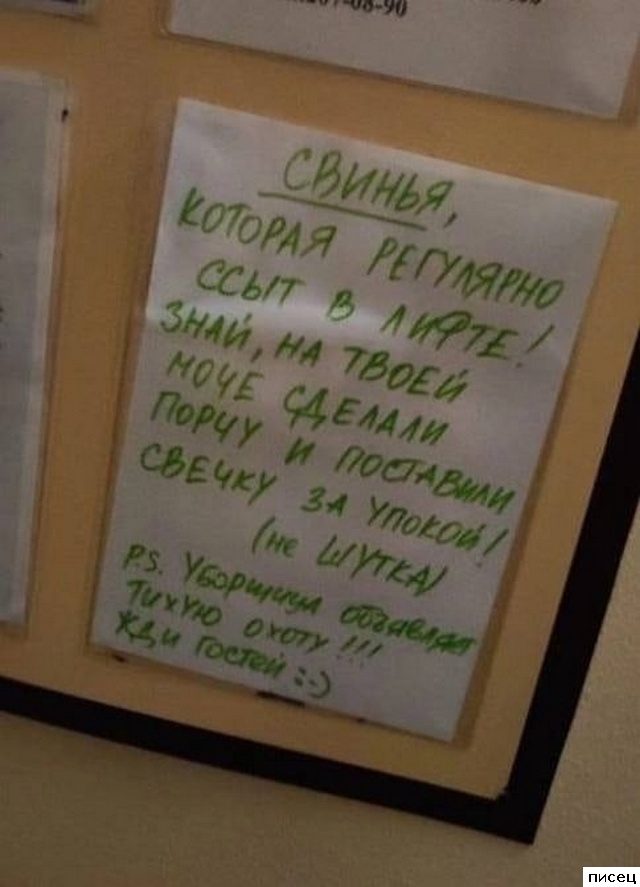 07-08-90
СВИНЬЯ,
КОТОРАЯ РЕГУЛЯРНО
ССЫТ В ЛИФТЕ!
ЗНАЙ, НА ТВОЕЙ
МОЧЕ СДЕЛАЛИ
ПОРЧУ И ПОСТАВИЛИ
СВЕЧКУ ЗА УПОКОЙ!
(не ШУТКА)
P.S. Уборщица объявляет
Тихую охоту!!!
Жди гостей :-)
писец